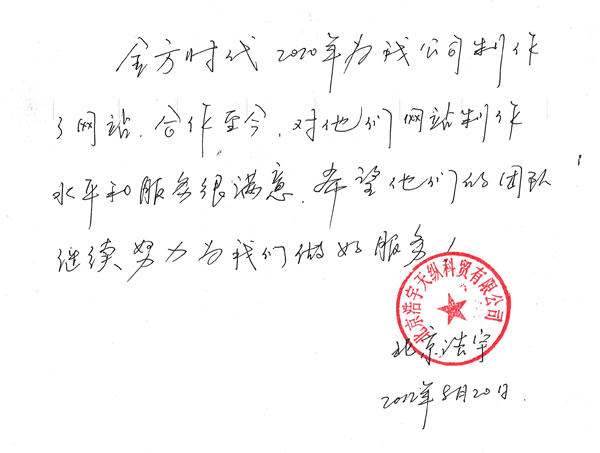 金方时代2020年为我公司制作
了网站.合作至今,对他们网站制作
水平和服务很满意.希望他们的团队
继续努力为我们做好服务!
北京浩宇天纵科贸有限公司
北京浩宇
2022年8月20日.